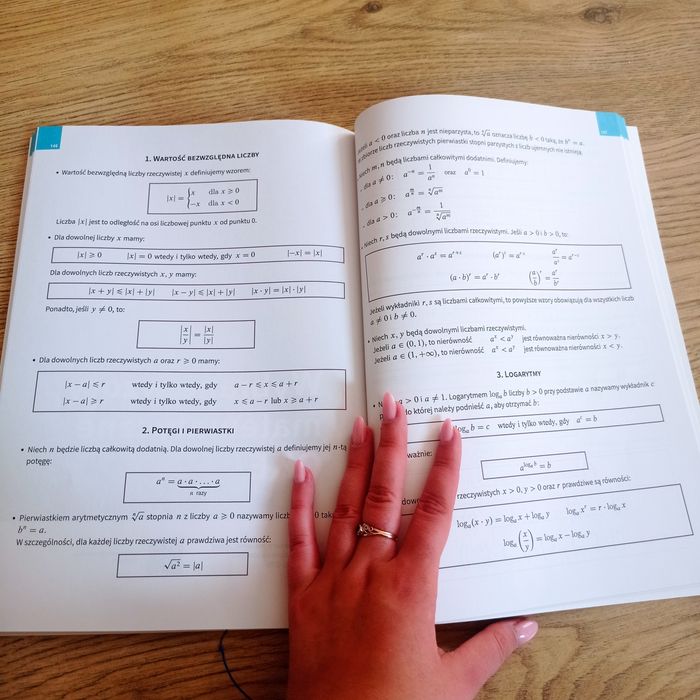 146
1. WARTOŚĆ BEZWZGLĘDNA LICZBY
• Wartość bezwzględną liczby rzeczywistej x definiujemy wzorem:
|x| = { x dla x ⩾ 0
−x dla x < 0
Liczba |x| jest to odległość na osi liczbowej punktu x od punktu 0.
• Dla dowolnej liczby x mamy:
|x| ⩾ 0 |x| = 0 wtedy i tylko wtedy, gdy x = 0 |−x| = |x|
Dla dowolnych liczb rzeczywistych x, y mamy:
|x + y| ⩽ |x| + |y| |x − y| ⩽ |x| + |y| |x · y| = |x| · |y|
Ponadto, jeśli y ≠ 0, to:
|x/y| = |x|/|y|
• Dla dowolnych liczb rzeczywistych a oraz r ⩾ 0 mamy:
|x − a| ⩽ r wtedy i tylko wtedy, gdy a − r ⩽ x ⩽ a + r
|x − a| ⩾ r wtedy i tylko wtedy, gdy x ⩽ a − r lub x ⩾ a + r
2. POTĘGI I PIERWIASTKI
• Niech n będzie liczbą całkowitą dodatnią. Dla dowolnej liczby rzeczywistej a definiujemy jej n-tą
potęgę:
aⁿ = a · a · … · a
n razy
• Pierwiastkiem arytmetycznym ⁿ√a stopnia n z liczby a ⩾ 0 nazywamy 0
bⁿ = a.
W szczególności, dla każdej liczby rzeczywistej a prawdziwa jest równość:
√a² = |a|
a < 0 oraz liczba n jest nieparzysta, to ⁿ√a oznacza liczbę b < 0 taką, że bⁿ = a.
zbiorze liczb rzeczywistych pierwiastki stopni parzystych z liczb ujemnych nie istnieją.
Niech m, n będą liczbami całkowitymi dodatnimi. Definiujemy:
– dla a ≠ 0: a⁻ⁿ = 1/aⁿ oraz a⁰ = 1
– dla a ⩾ 0: a^(m/n) = ⁿ√(aᵐ)
– dla a > 0: a^(−m/n) = 1/ⁿ√(aᵐ)
• Niech r, s będą dowolnymi liczbami rzeczywistymi. Jeśli a > 0 i b > 0, to:
aʳ · aˢ = aʳ⁺ˢ (aʳ)ˢ = aʳ·ˢ aʳ/aˢ = aʳ⁻ˢ
(a · b)ʳ = aʳ · bʳ (a/b)ʳ = aʳ/bʳ
Jeżeli wykładniki r, s są liczbami całkowitymi, to powyższe wzory obowiązują dla wszystkich liczb
a ≠ 0 i b ≠ 0.
• Niech x, y będą dowolnymi liczbami rzeczywistymi.
Jeżeli a ∈ (0, 1), to nierówność aˣ < aʸ jest równoważna nierówności x > y.
Jeżeli a ∈ (1, +∞), to nierówność aˣ < aʸ jest równoważna nierówności x < y.
3. LOGARYTMY
a > 0 i a ≠ 1. Logarytmem logₐ b liczby b > 0 przy podstawie a nazywamy wykładnik c
do której należy podnieść a, aby otrzymać b:
logₐ b = c wtedy i tylko wtedy, gdy aᶜ = b
a^(logₐ b) = b
rzeczywistych x > 0, y > 0 oraz r prawdziwe są równości:
logₐ(x · y) = logₐ x + logₐ y logₐ xʳ = r · logₐ x
logₐ(x/y) = logₐ x − logₐ y